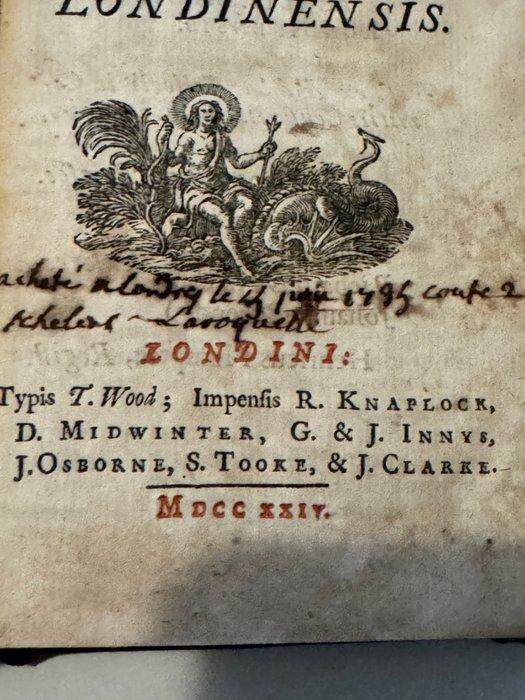 LONDINENSIS.
acheté a Londres le 4 juin 1795 coute 2
schelins Laroquette
LONDINI:
Typis T. Wood; Impensis R. KNAPLOCK,
D. MIDWINTER, G. & J. INNYS,
J. OSBORNE, S. TOOKE, & J. CLARKE.
MDCCXXIV.